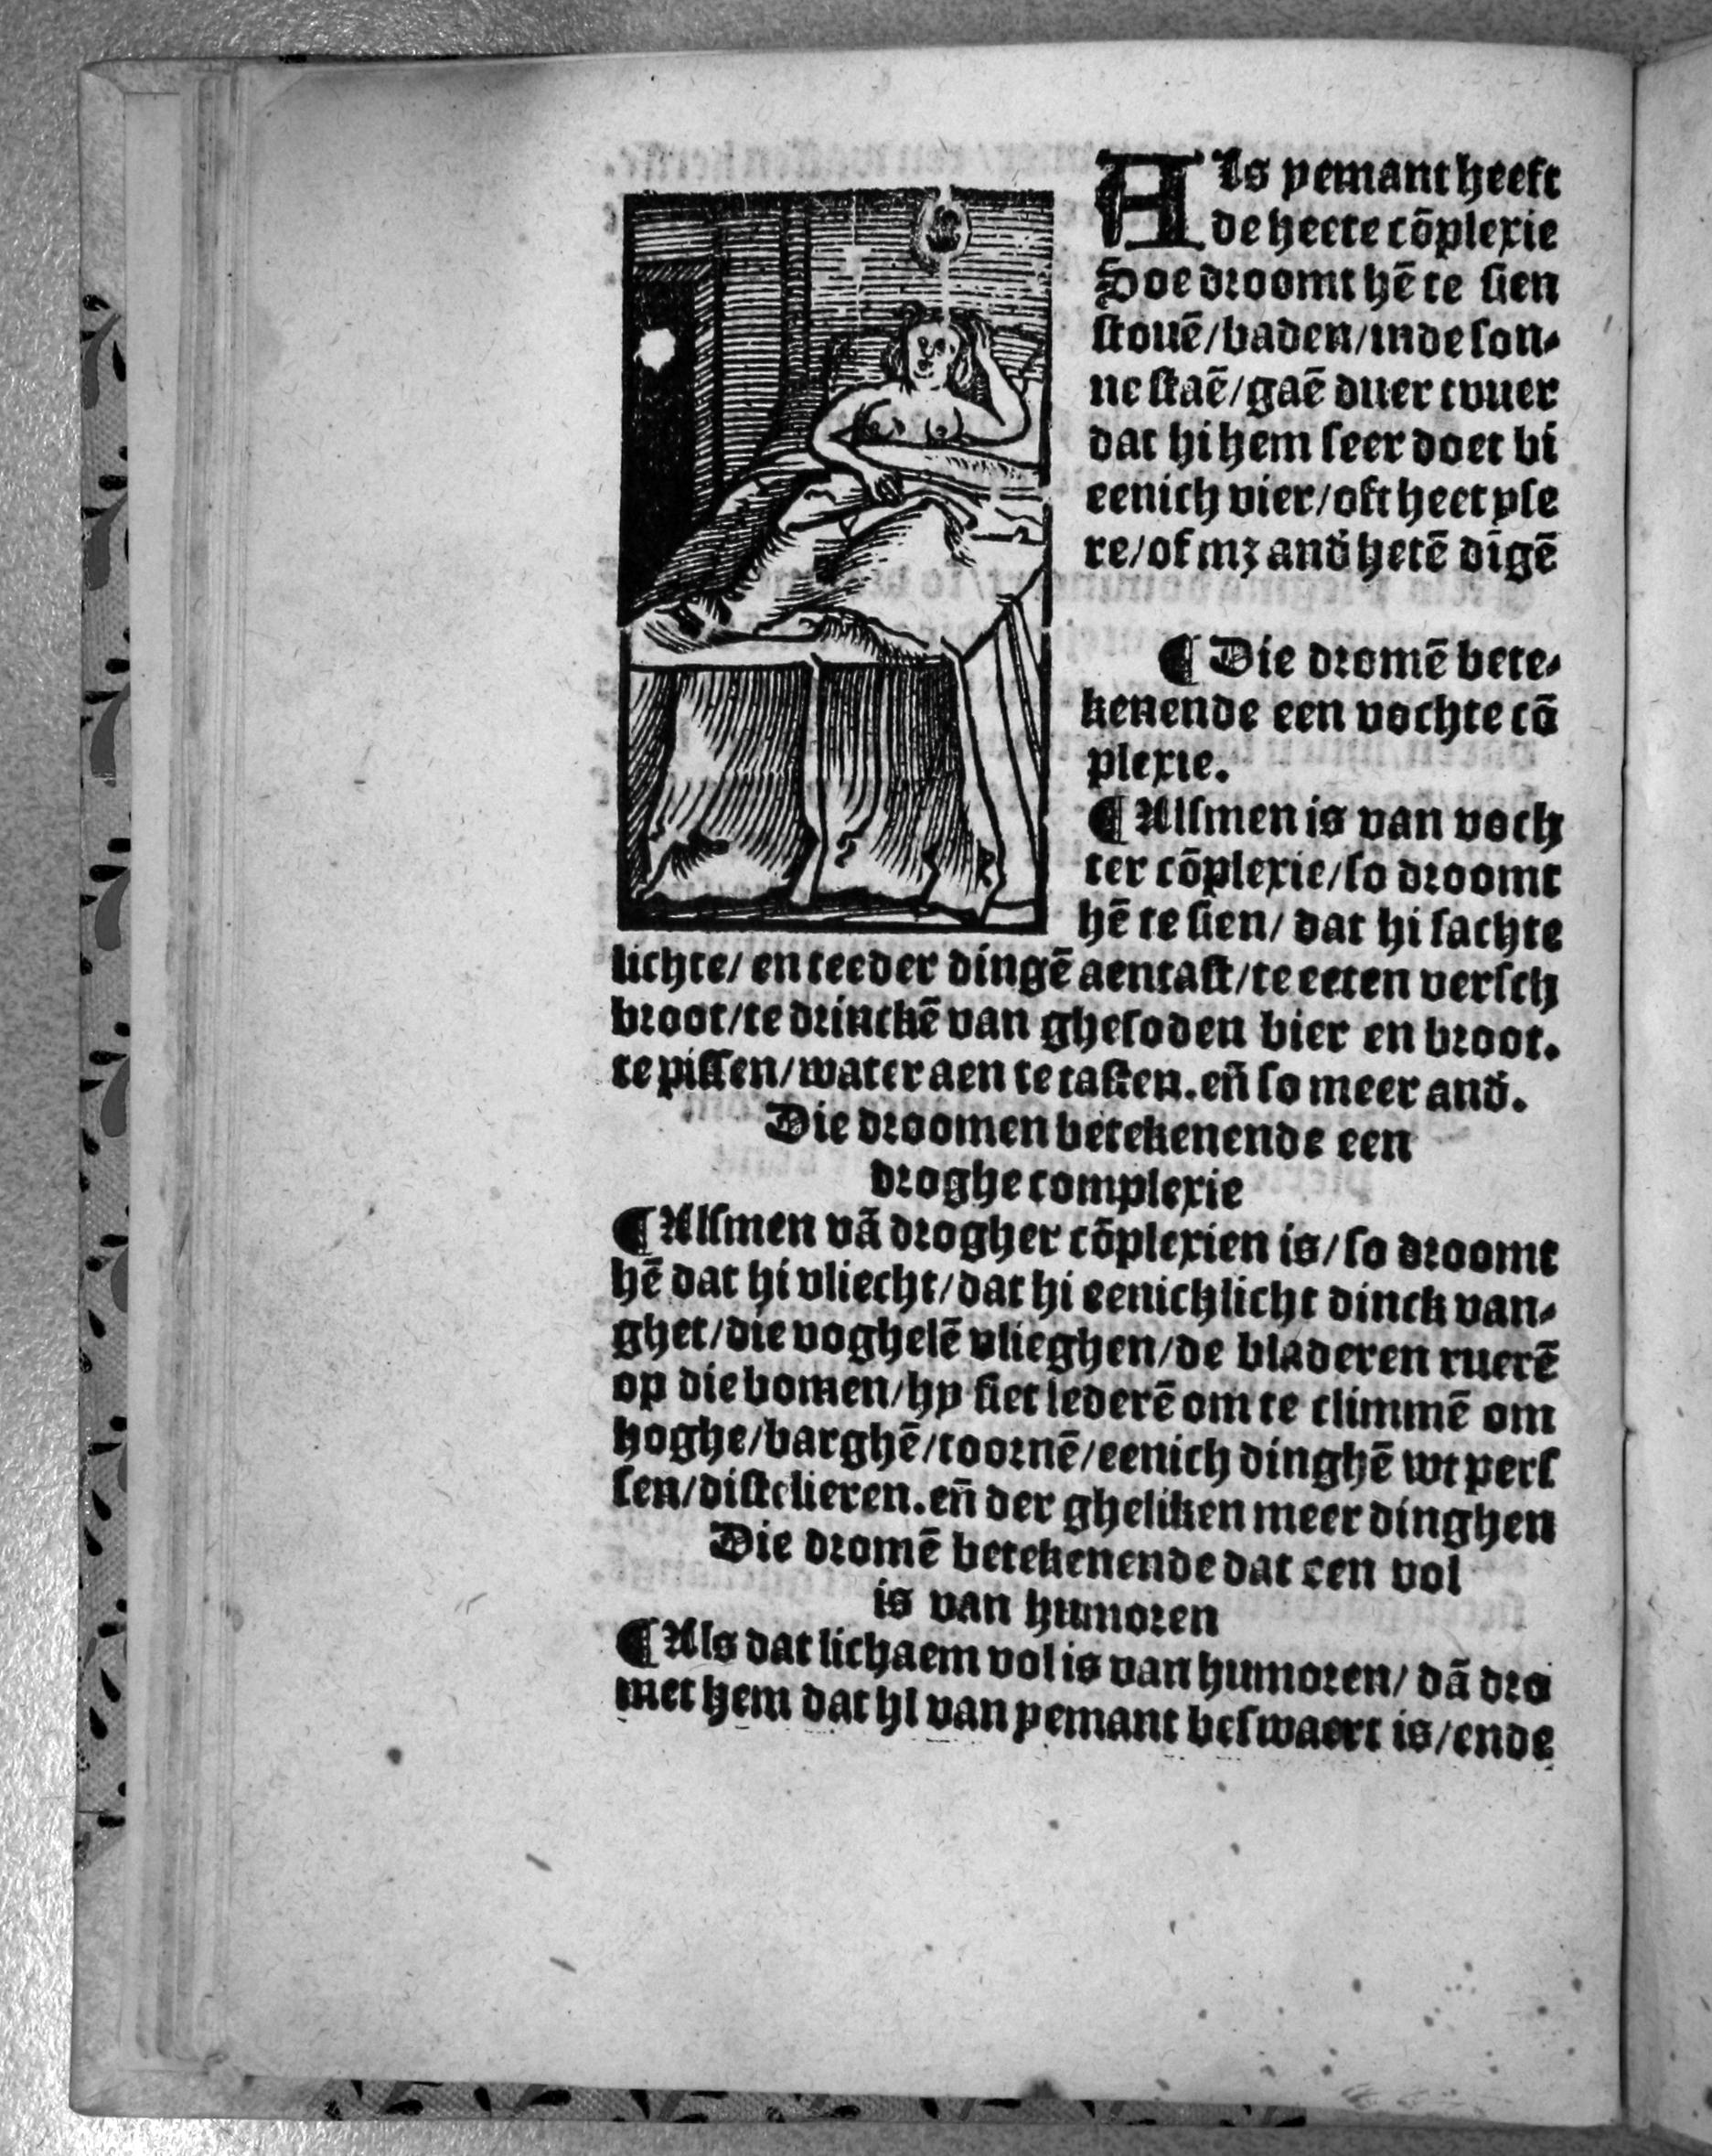 Als yemant heeft
de heete cōplexie
Soe droomt hē te sien
stouē/baden/inde son⸗
ne staē/gaē duer tvuer
dat hi hem seer doet bi
eenich vier/oft heet yse
re/of mz and' hetē digē
¶ Die dromē bete⸗
kenende een vochte cō
plexie.
¶ Alsmen is van voch
ter cōplexie/so droomt
hē te sien/ dat hi sachte
lichte/ en teeder dingē aentast/te eeten versch
broot/te drinckē van ghesoden bier en broot.
te pissen/water aen te tasten.eñ so meer and'.
Die droomen betekenende een
droghe complexie
¶ Alsmen vā drogher cōplexien is/so droomt
hē dat hi vliecht/dat hi eenich licht dinck van⸗
ghet/die voghelē vlieghen/de bladeren ruerē
op die bomen/hy siet lederē om te climmē om
hoghe/barghē/toornē/eenich dinghē wt pers
sen/distelieren.eñ der gheliken meer dinghen
Die dromē betekenende dat een vol
is van humoren
¶ Als dat lichaem vol is van humoren/ dā dro
met hem dat hi van yemant beswaert is/ende